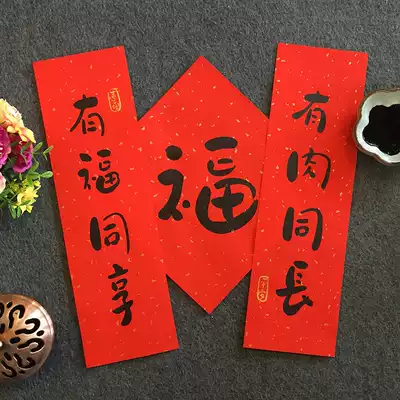 有福同享
福
有肉同長